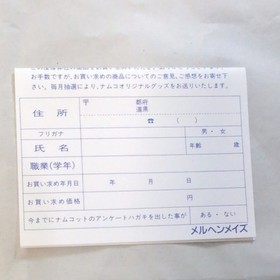 お手数ですが、お買い求めの商品についてのご意見、ご感想をお寄せ下
さい。毎月抽選により、ナムコオリジナルグッズをお送りいたします。
住所 〒 都府
道県
☎ ( )
フリガナ 男・女
氏名 年齢 歳
職業(学年)
お買い求め年月日 年 月 日
お買い求め価格 円
今までにナムコットのアンケートハガキを出した事が ある・ない
メルヘンメイズ